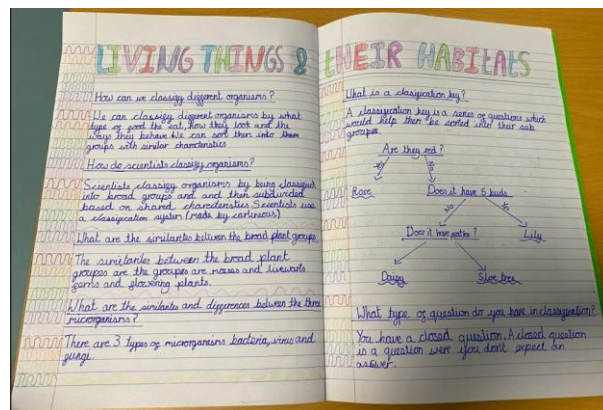 LIVING THINGS & THEIR HABITATS
How can we classify different organisms?
We can classify different organisms by what
type of food the eat, how they look and the
ways they behave. We can sort then into them
groups with similar charateristics
How do scientists classify organisms?
Scientists classify organisms by being classified
into broad groups and and then subdivided
based on shared characteristics Scientists use
a classification system (made by
What are the similarites between the broad plant groups
The similarites between the broad plant
groupes are the groupes are moses and liverworts
ferns and flowering plants.
What are the similarites and differences between the three
microrganisms?
There are 3 types of microrganisms bacteria, virus and
fungi.
What is a classification key?
A classification key is a series of questions which
would help then be sorted into their sub
groupes.
Are they red?
yes
no
Rose
Does it have 6 buds
no
Does it have
Lily
Daisy
tree
What type of question do you have in classification?
You have a closed question. A closed question
is a question were you dont expect an
answer.